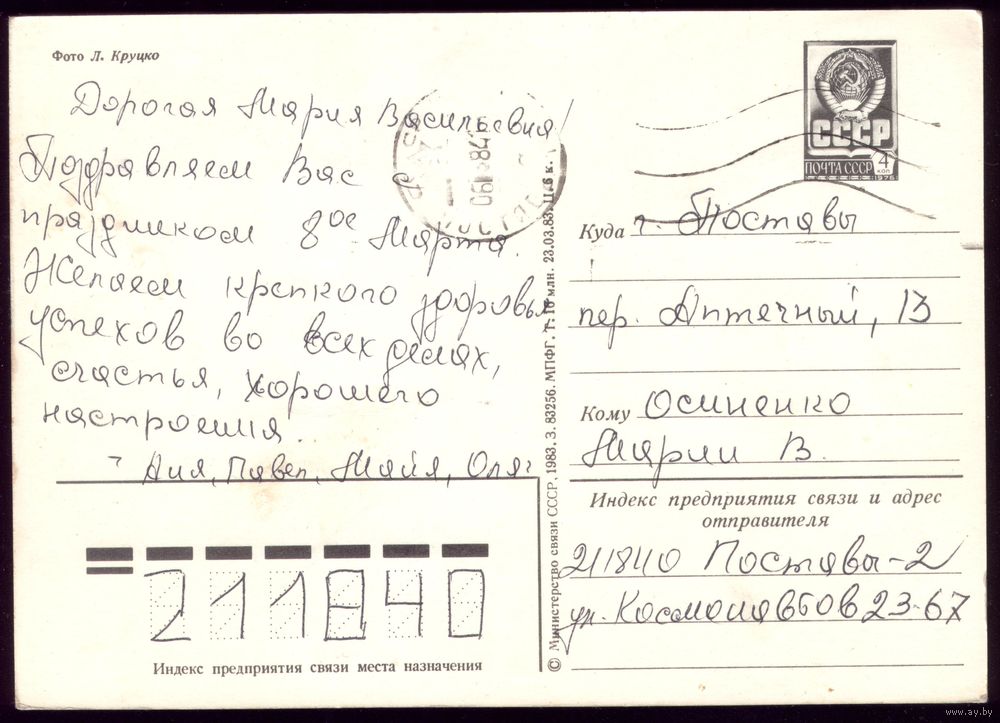 Фото Л. Круцко
Дорогая Мария Васильевна!
Поздравляем Вас с
праздником 8ое Марта.
Желаем крепкого здоровья
успехов во всех делах,
счастья, хорошего
настроения.
Аня, Павел, Майя, Оля
211840
Индекс предприятия связи места назначения
© Министерство связи СССР, 1983. З. 83256. МПФГ. Т. 16 млн. 23.03.83. Ц. 6 к.
СССР
ПОЧТА СССР 4 коп
1976
Куда г. Поставы
пер. Аптечный, 13
Кому Осиненко
Марии В.
Индекс предприятия связи и адрес
отправителя
211840 Поставы-2
ул. Космонавтов 23-67
www.ay.by